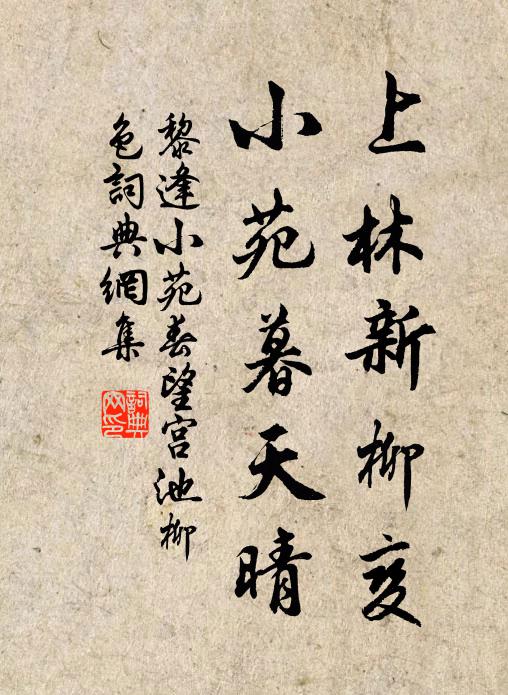 上林新柳变
小苑暮天晴
黎逢小苑春望宫池柳
色詞典網集
詞典网印